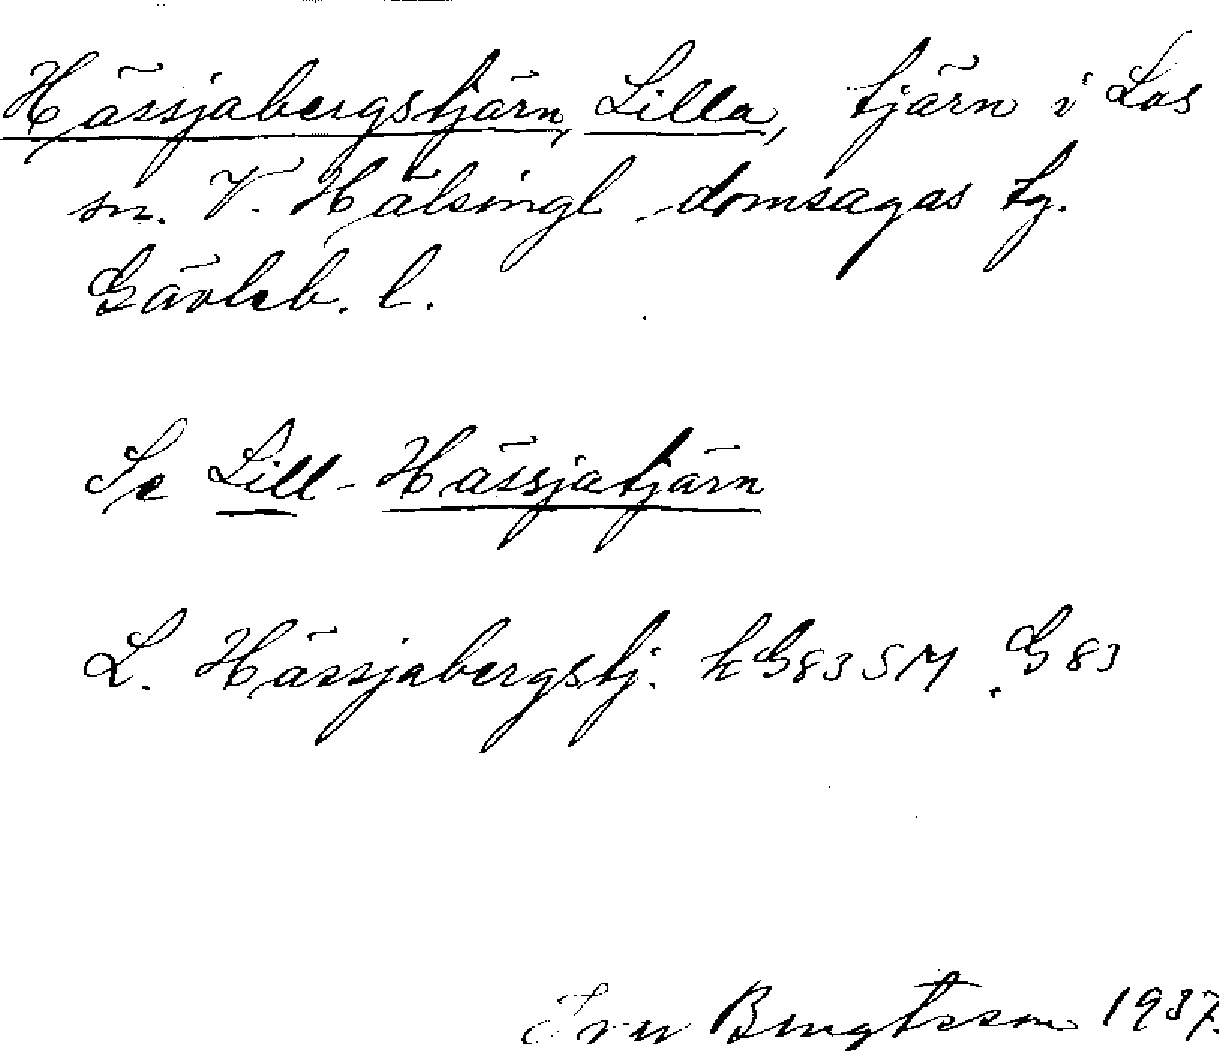 Hässjabergstjärn, Lilla, tjärn i Los
sn. V. Hälsingl. domsagas tg.
Gävleb. l.
Se Lill-Hässjatjärn
L. Hässjabergstj. kG83SM. G83
Bengtsson 1937.